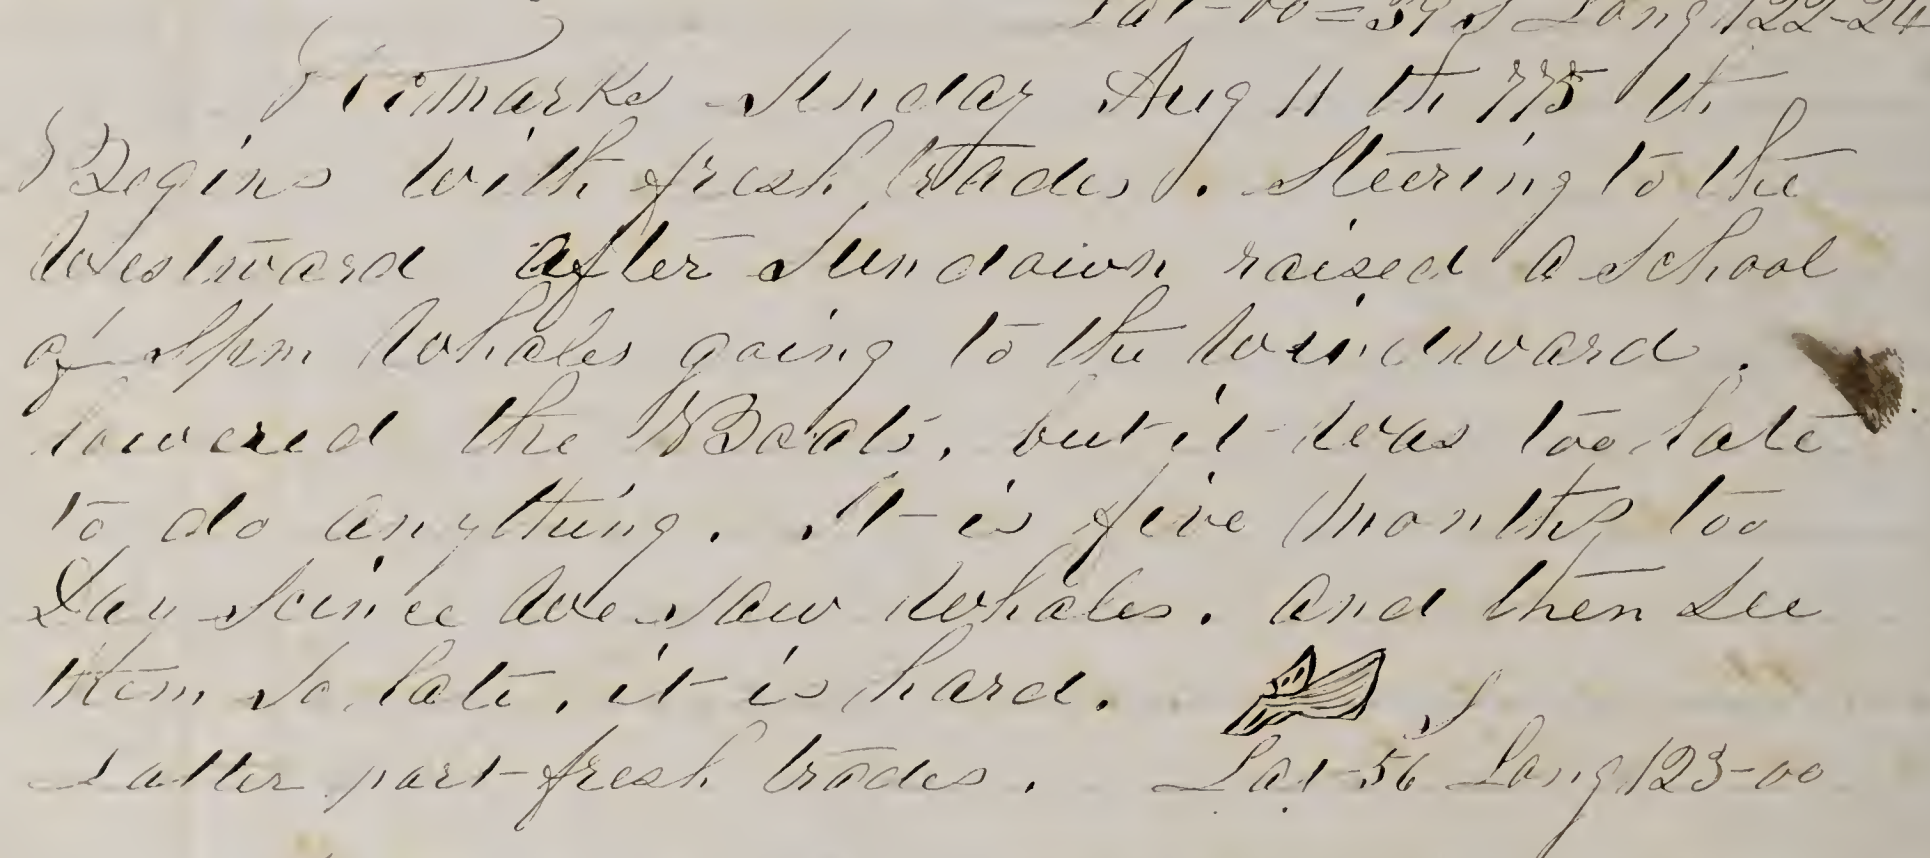 Lat-00=39 S Long 122-24
Remarks Sunday Aug 11 th 775 th
Begins with fresh trades. Steering to the
Westward after Sundown raised a School
of Spm Whales going to the windward.
lowered the Boats, but it was too late
to do anything. It is five Months too
Day Scince we saw Whales. and then see
them so late, it is hard.
S
Latter part fresh trades. Lat-56 Long 123-00